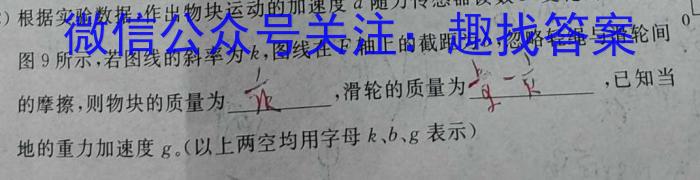 根据实验数据,作出物块运动的加速度 a 随力传感器
微信公众号关注：趣找答案
图9所示,若图线的斜率为 k,图线在 F 轴上的截距为
的摩擦,则物块的质量为 1/k ,滑轮的质量为 b/g - 1/k ,已知当
地的重力加速度 g。(以上两空均用字母 k、b、g 表示)